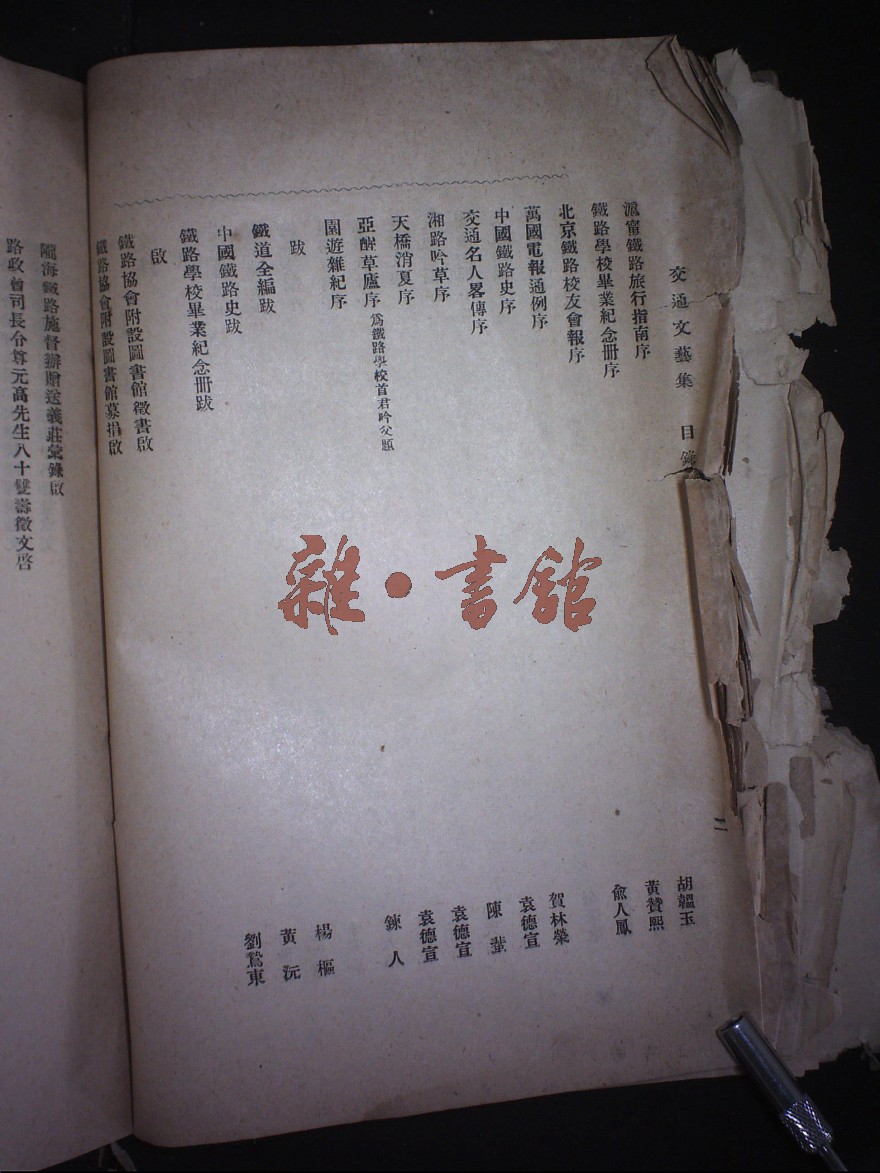 交通文藝集 目錄 二
滬甯鐵路旅行指南序 胡韞玉
鐵路學校畢業紀念冊序 黃贊熙
北京鐵路校友會報序 俞人鳳
萬國電報通例序
中國鐵路史序 賀林榮
交通名人畧傳序 袁德宣
湘路吟草序 陳蜚
天橋消夏序 袁德宣
亞醉草廬序 為鐵路學校首君吟父題 袁德宣
園遊雜紀序 鍊人
跋
鐵道全編跋 楊樞
中國鐵路史跋 黃沅
鐵路學校畢業紀念冊跋 劉鵞東
啟
鐵路協會附設圖書館徵書啟
鐵路協會附設圖書館募捐啟
隴海鐵路施督辦贈送義莊彙錄啟
路政曾司長介尊元高先生八十雙壽徵文啓
雜·書館